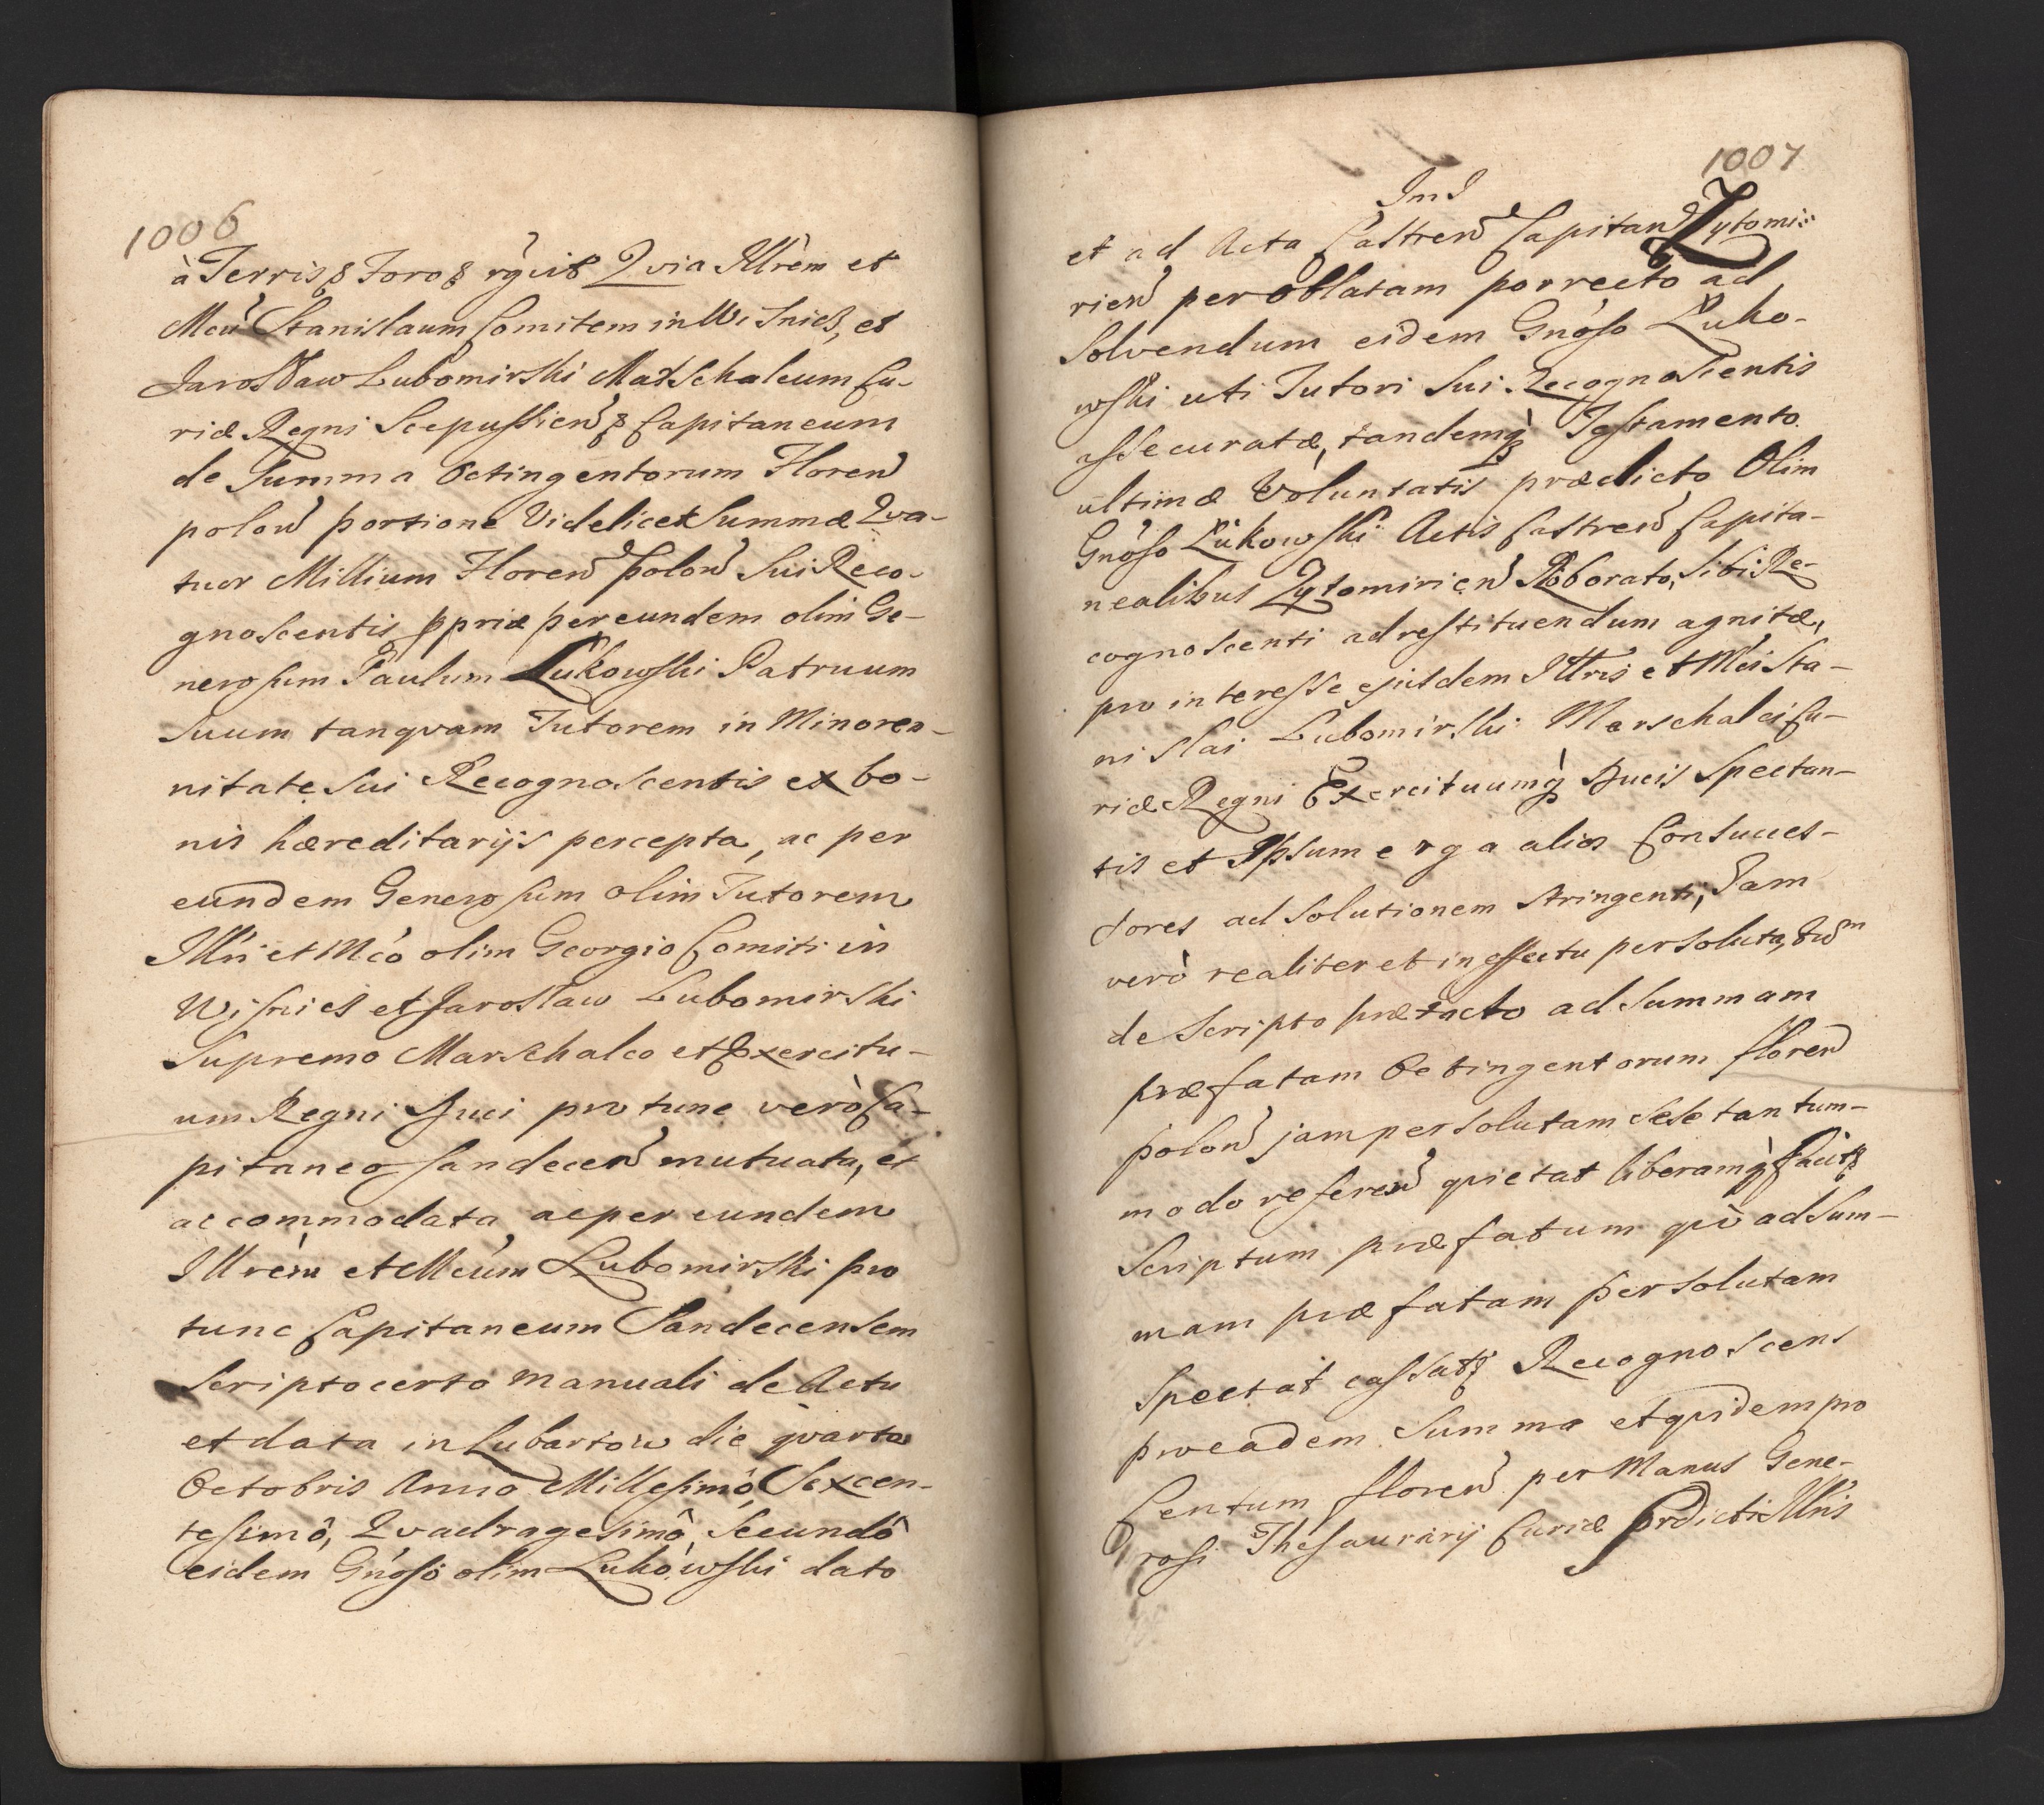 1006
à Terris & Foro & rg̃cit Qvia Illrẽm et
Mcũ Stanislaum Comitem in Wisnicz, et
Jarosław Lubomirski Marschalcum Cu-
riæ Regni Scepussień & Capitaneum
de Summa Octingentorum Floreń
poloń portione Videlicet Summæ Qva-
tuor Millium Floreń Poloń Sui Reco-
gnoscentis ppriæ per eundem olim Ge-
nerosum Paulum Łukowski Patruum
Suum tanqvam Tutorem in Minoren-
nitate Sui Recognoscentis ex bo-
nis hæreditarijs percepta, ac per
eundem Generosum olim Tutorem
Illri et Mcó olim Georgio Comiti in
Wisnicz et Jarosław Lubomirski
Supremo Marschalco et Exercitu-
um Regni Duci pro tunc verò Ca-
pitaneo Sandeceń mutuata, et
accommodata, ac per eundem
Illrẽm et Mcúm Lubomirski pro
tunc Capitaneum Sandecensem
Scripto certo manuali de Actu
et data in Lubartow die qvarta
Octobris Anno Millesimô, Sexcen-
tesimô, Qvadragesimô, Secundô
eidem Gnóso olim Lukowski dato
1007
Ind
et ad Acta Castreń Capitań Zytomi-
rień per oblatam porrecto ad
Solvendum eidem Gnóso Łuko-
wski uti Tutori Sui Recognoscentis
assecuratæ, tandemq̀ Testamento
ultimæ Voluntatis prædicto Olim
Gnóso Łukowski Actis Castreń Capita-
nealibus Zytomirień Roborato, Sibi Re-
cognoscenti ad restituendum agnitæ,
pro interesse ejusdem Illris et Mci Sta-
nislai Lubomirski Marschalci Cu-
riæ Regni Exercituumq̀ Ducis Spectan-
tis et Ipsum erga alios Consucces-
sores ad Solutionem Stringenti, Jam
verò realiter et in effectu persoluta,
de Scripto prætacto ad Summam
præfatam Octingentorum floreń
Poloń jam persolutam Sese tantum-
modo refereń qvietat liberamq̀ facit &
Scriptum præfatum qvò ad Sum-
mam præfatam persolutam
Spectat cassat & Recognoscens
pro eadem Summa et qvidem pro
Centum floreń per Manus Gene-
rosi Thesaurarij Curiæ prdicti Illris